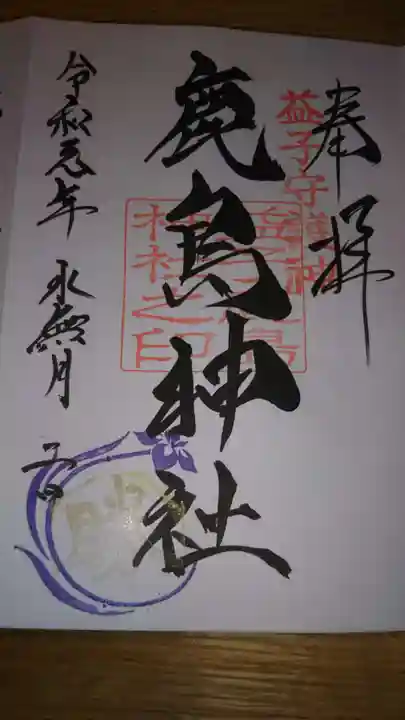 奉拝
益子守護神
鹿島神社
益子鹿島神社之印
令和元年 水無月 五日
勝